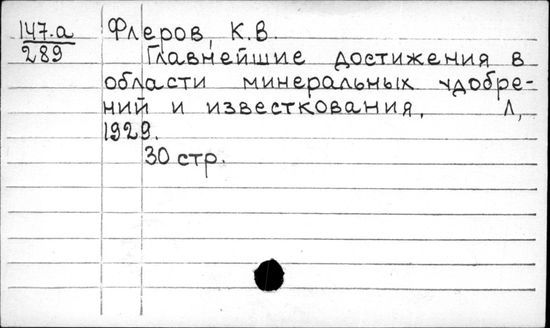 147.а Флеров, К.В.
289 Главнейшие достижения в
области минеральных удобре-
ний и известкования. Л,
1929.
30 стр.